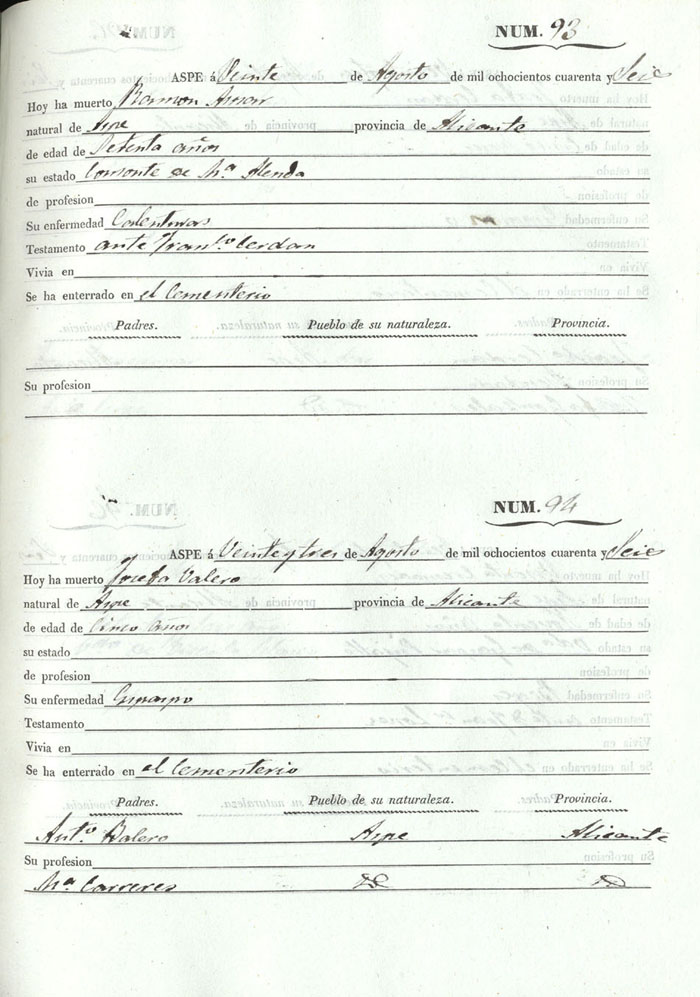 NUM. 93
ASPE á Veinte de Agosto de mil ochocientos cuarenta y Seis
Hoy ha muerto Ramon
natural de Aspe provincia de Alicante
de edad de Setenta años
su estado Consorte de Mª
de profesion
Su enfermedad Calenturas
Testamento ante Franco. Cerdan
Vivia en
Se ha enterrado en el Cementerio
Padres. Pueblo de su naturaleza. Provincia.
Su profesion
NUM. 94
ASPE á Veinte y tres de Agosto de mil ochocientos cuarenta y Seis
Hoy ha muerto Josefa Valero
natural de Aspe provincia de Alicante
de edad de Cinco años
su estado
de profesion
Su enfermedad
Testamento
Vivia en
Se ha enterrado en el Cementerio
Padres. Pueblo de su naturaleza. Provincia.
Antº Balero Aspe Alicante
Su profesion
Mª Carreres